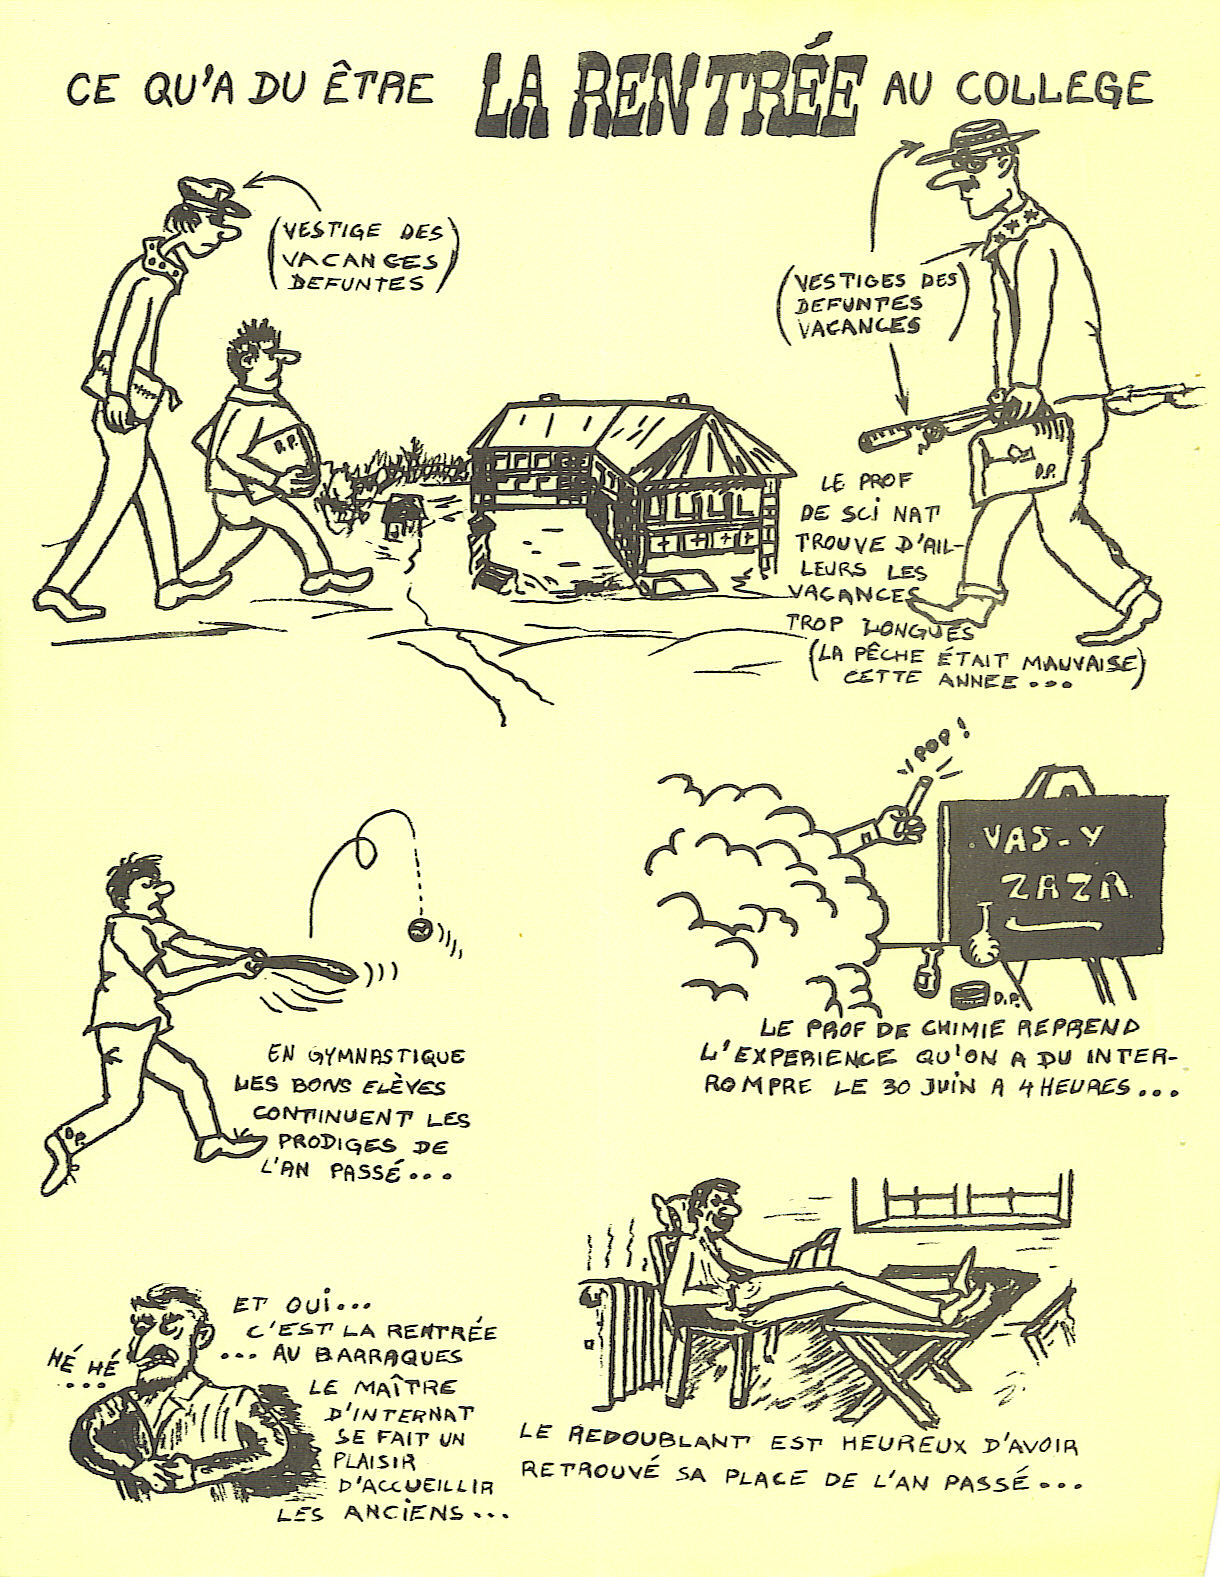 CE QU'A DU ÊTRE LA RENTRÉE AU COLLEGE
(VESTIGE DES
VACANCES
DEFUNTES)
(VESTIGES DES
DEFUNTES
VACANCES)
D.P.
D.P.
LE PROF
DE SCI NAT
TROUVE D'AIL-
LEURS LES
VACANCES
TROP LONGUES
(LA PÊCHE ÉTAIT MAUVAISE)
CETTE ANNEE...
POP!
VAS-Y
ZAZA
D.P.
LE PROF DE CHIMIE REPREND
L'EXPERIENCE QU'ON A DU INTER-
ROMPRE LE 30 JUIN A 4 HEURES...
EN GYMNASTIQUE
LES BONS ELÈVES
CONTINUENT LES
PRODIGES DE
L'AN PASSÉ...
D.P.
HÉ HÉ
...
ET OUI...
C'EST LA RENTRÉE
... AU BARRAQUES
LE MAÎTRE
D'INTERNAT
SE FAIT UN
PLAISIR
D'ACCUEILLIR
LES ANCIENS...
LE REDOUBLANT EST HEUREUX D'AVOIR
RETROUVÉ SA PLACE DE L'AN PASSÉ...